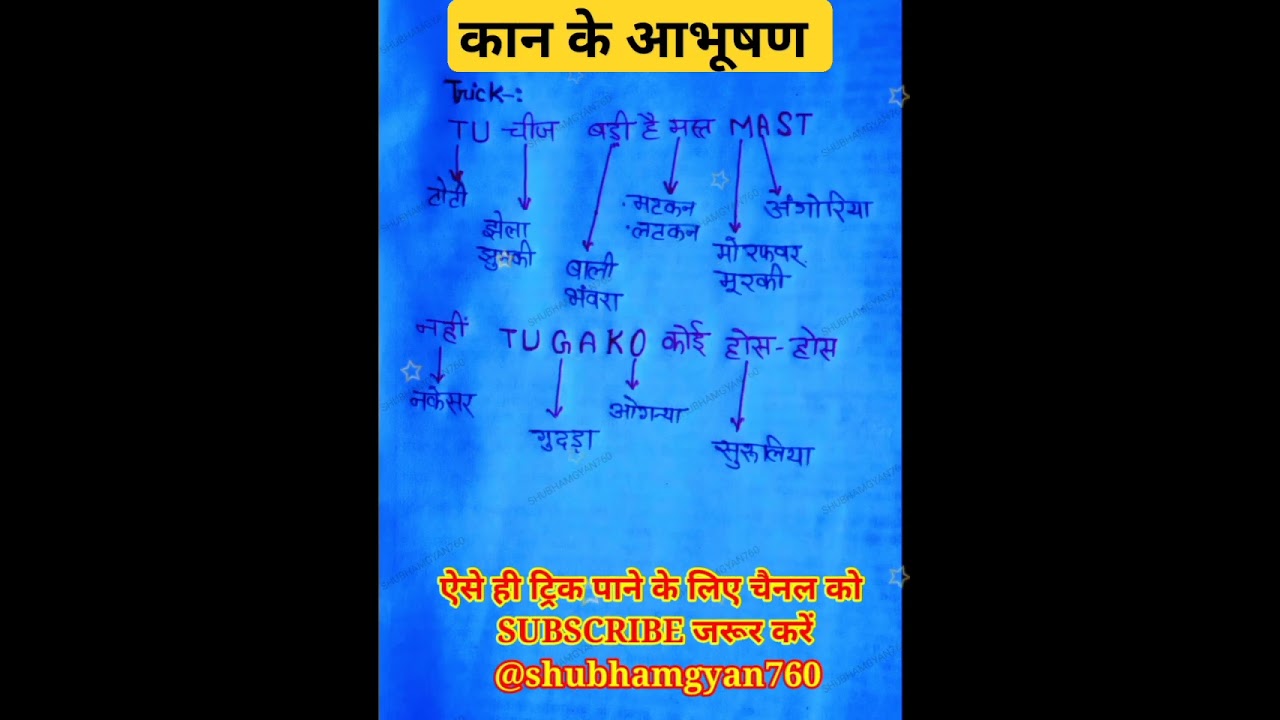 कान के आभूषण
Trick-:
TU चीज बड़ी है मस्त MAST
टोटी
झेला
झुमकी
बाली
भंवरा
·मटकन
·लटकन
मोरफवर
मूरकी
अंगोरिया
नहीं TUGAKO कोई होस-होस
नकेसर
गुदड़ा
ओगन्या
सुरूलिया
ऐसे ही ट्रिक पाने के लिए चैनल को
SUBSCRIBE जरूर करें
@shubhamgyan760
SHUBHAMGYAN760